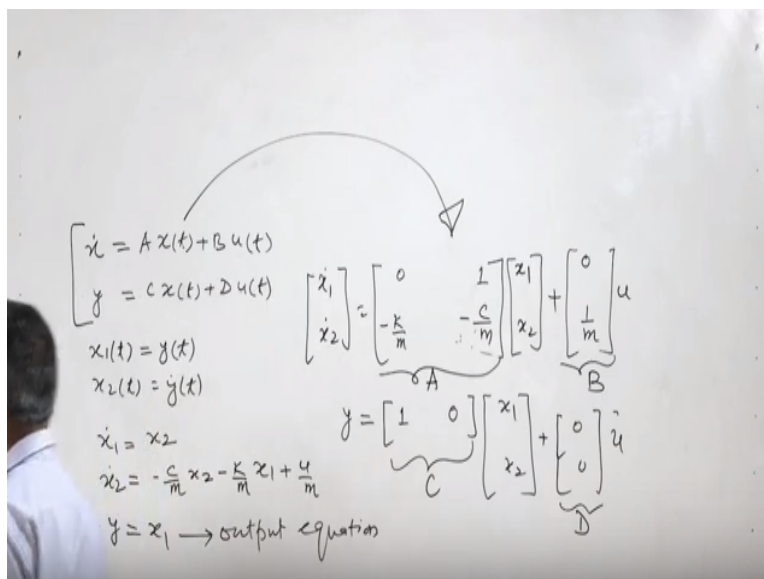 ẋ = A x(t) + B u(t)
y = C x(t) + D u(t)
x1(t) = y(t)
x2(t) = ẏ(t)
ẋ1 = x2
ẋ2 = -c/m x2 - k/m x1 + u/m
y = x1 → output equation
[ẋ1; ẋ2] = [0 1; -k/m -c/m] [x1; x2] + [0; 1/m] u
A B
y = [1 0] [x1; x2] + [0; 0] u
C D